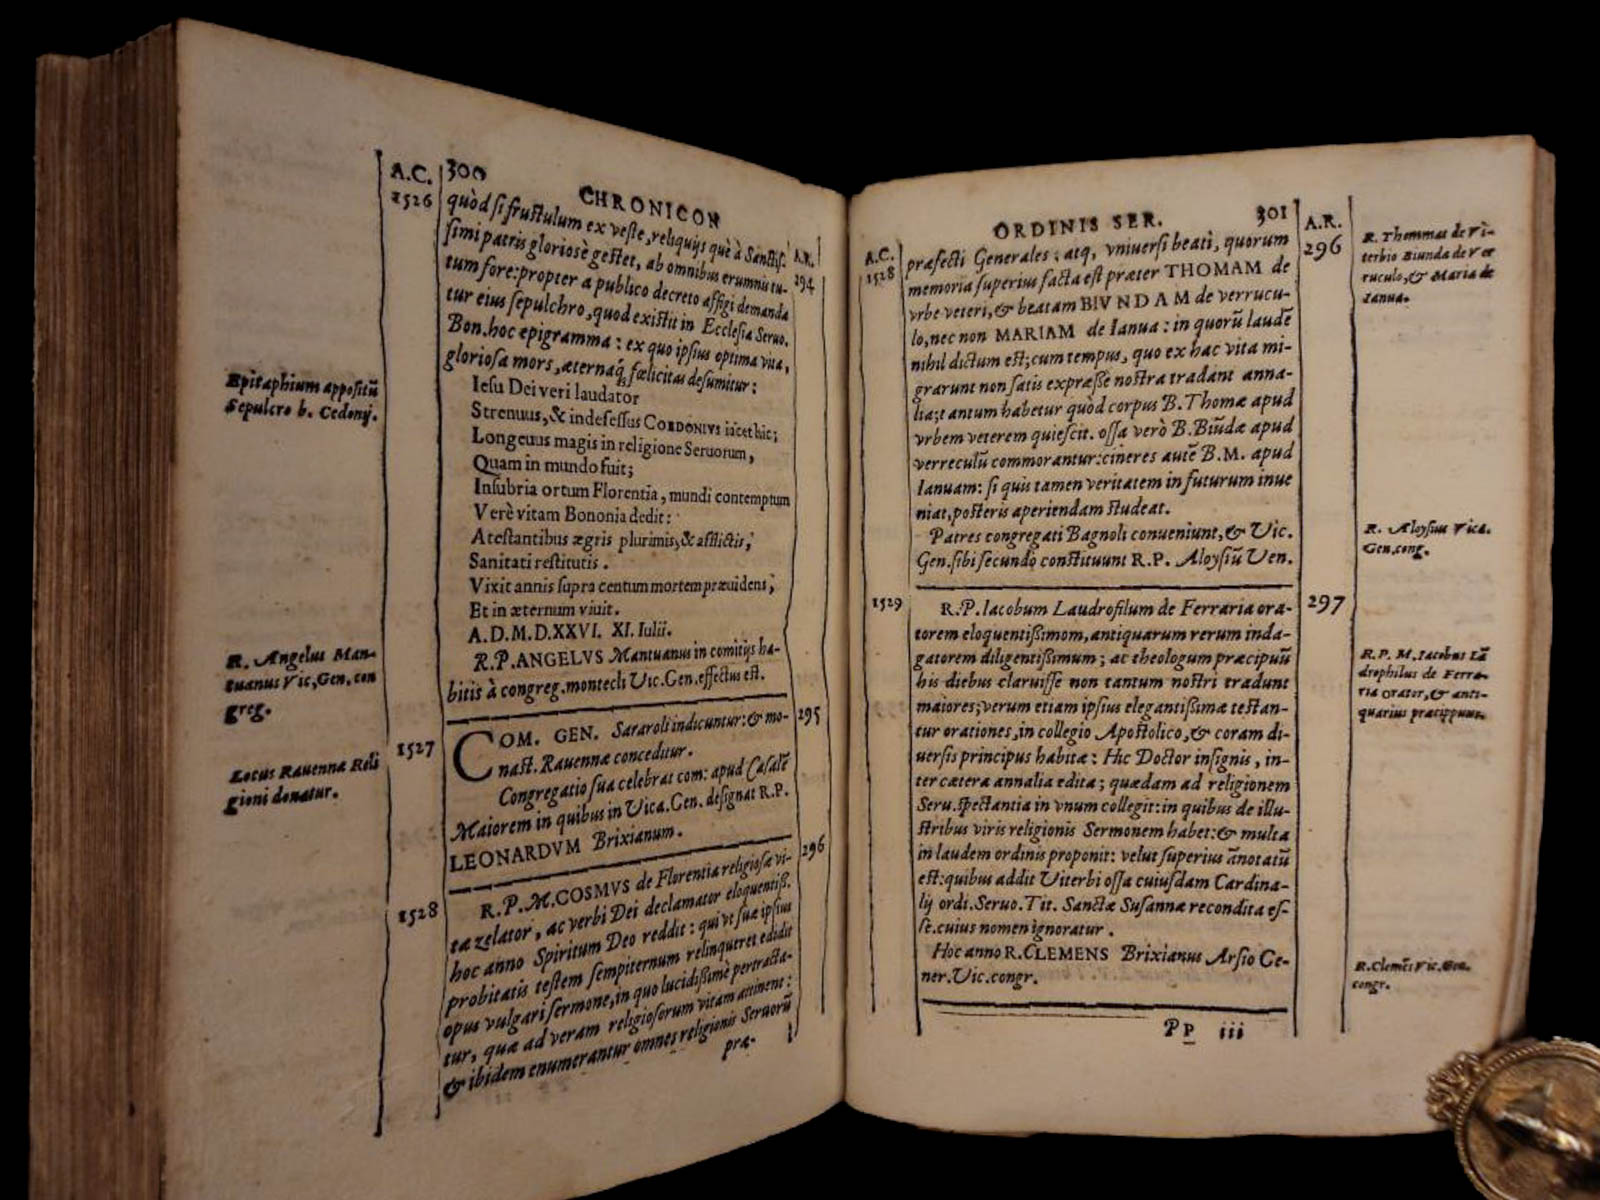 A.C. 300
CHRONICON
1526
A.R.
294
quòd si frustulum ex veste, reliquijs què à Sanctis-
simi patris gloriosè gestet, ab omnibus erumnis tu-
tum fore: propter a publico decreto affigi demanda
tur eius sepulchro, quod existit in Ecclesia Seruo.
Bon. hoc epigramma: ex quo ipsius optima vita,
gloriosa mors, æternaq; fœlicitas desumitur:
Epitaphium appositũ
Sepulcro b. Cedonij.
Iesu Dei veri laudator
Strenuus, & indefessus CORDONIVS iacet hic;
Longeuus magis in religione Seruorum,
Quam in mundo fuit;
Insubria ortum Florentia, mundi contemptum
Verè vitam Bononia dedit:
Atestantibus ægris plurimis, & afflictis,
Sanitati restitutis.
Vixit annis supra centum mortem præuidens;
Et in æternum viuit.
A.D.M.D.XXVI. XI. Iulii.
R. Angelus Man-
tuanus Vic, Gen. con
greg.
R.P. ANGELVS Mantuanus in comitijs ha-
bitis à congreg. montecli Vic. Gen. effectus est.
1527
295
COM. GEN. Sararoli indicuntur: & mo-
nast. Rauennæ conceditur.
Locus Rauennæ Reli
gioni donatur.
Congregatio sua celebrat com: apud Casalẽ
Maiorem in quibus in Vica. Gen. designat R.P.
LEONARDVM Brixianum.
1528
296
R.P.M. COSMVS de Florentia religiosæ vi-
tæ zelator, ac verbi Dei declamator eloquentiss.
hoc anno Spiritum Deo reddit: qui vt suæ ipsius
probitatis testem sempiternum relinqueret edidit
opus vulgari sermone, in quo lucidissimè pertracta-
tur, quæ ad veram religiosorum vitam attinent:
& ibidem enumerantur omnes religionis Seruorũ
præ-
ORDINIS SER. 301
A.C.
1528
A.R.
296
præfecti Generales: atq, vniuersi beati, quorum
memoria superius facta est præter THOMAM de
vrbe veteri, & beatam BIVNDAM de verrucu-
lo, nec non MARIAM de Ianua: in quorũ laudẽ
nihil dictum est; cum tempus, quo ex hac vita mi-
grarunt non satis expræssè nostra tradant anna-
lia; tantum habetur quòd corpus B. Thomæ apud
vrbem veterem quiescit. ossa verò B. Biũdæ apud
verreculũ commorantur: cineres autẽ B.M. apud
Ianuam: si quis tamen veritatem in futurum inue
niat, posteris aperiendam studeat.
R. Thommas de Vi-
terbio Biunda de Ver
ruculo, & Maria de
Ianua.
Patres congregati Bagnoli conueniunt, & Vic.
Gen. sibi secundò constituunt R.P. Aloysiũ Ven.
R. Aloysius Vica.
Gen. cong.
1529
297
R.P. Iacobum Laudrofilum de Ferraria ora-
torem eloquentissimom, antiquarum rerum inda-
gatorem diligentissimum; ac theologum præcipuũ
his diebus claruisse non tantum nostri tradunt
maiores; verum etiam ipsius elegantissimæ testan-
tur orationes, in collegio Apostolico, & coram di-
uersis principus habitæ: Hic Doctor insignis, in-
ter cætera annalia edita; quædam ad religionem
Seru. spectantia in vnum collegit: in quibus de illu-
stribus viris religionis Sermonem habet: & multa
in laudem ordinis proponit: velut superius ãnotatũ
est: quibus addit Viterbi ossa cuiusdam Cardina-
lij ordi. Seruo. Tit. Sanctæ Susannæ recondita es-
se. cuius nomen ignoratur.
R.P.M. Iacobus Lã
drophilus de Ferra-
ria orator, & anti-
quarius præcippuus.
Hoc anno R. CLEMENS Brixianus Arsio Ge-
ner. Vic. congr.
R. Clemẽs Vic. Gen.
congr.
PP iii